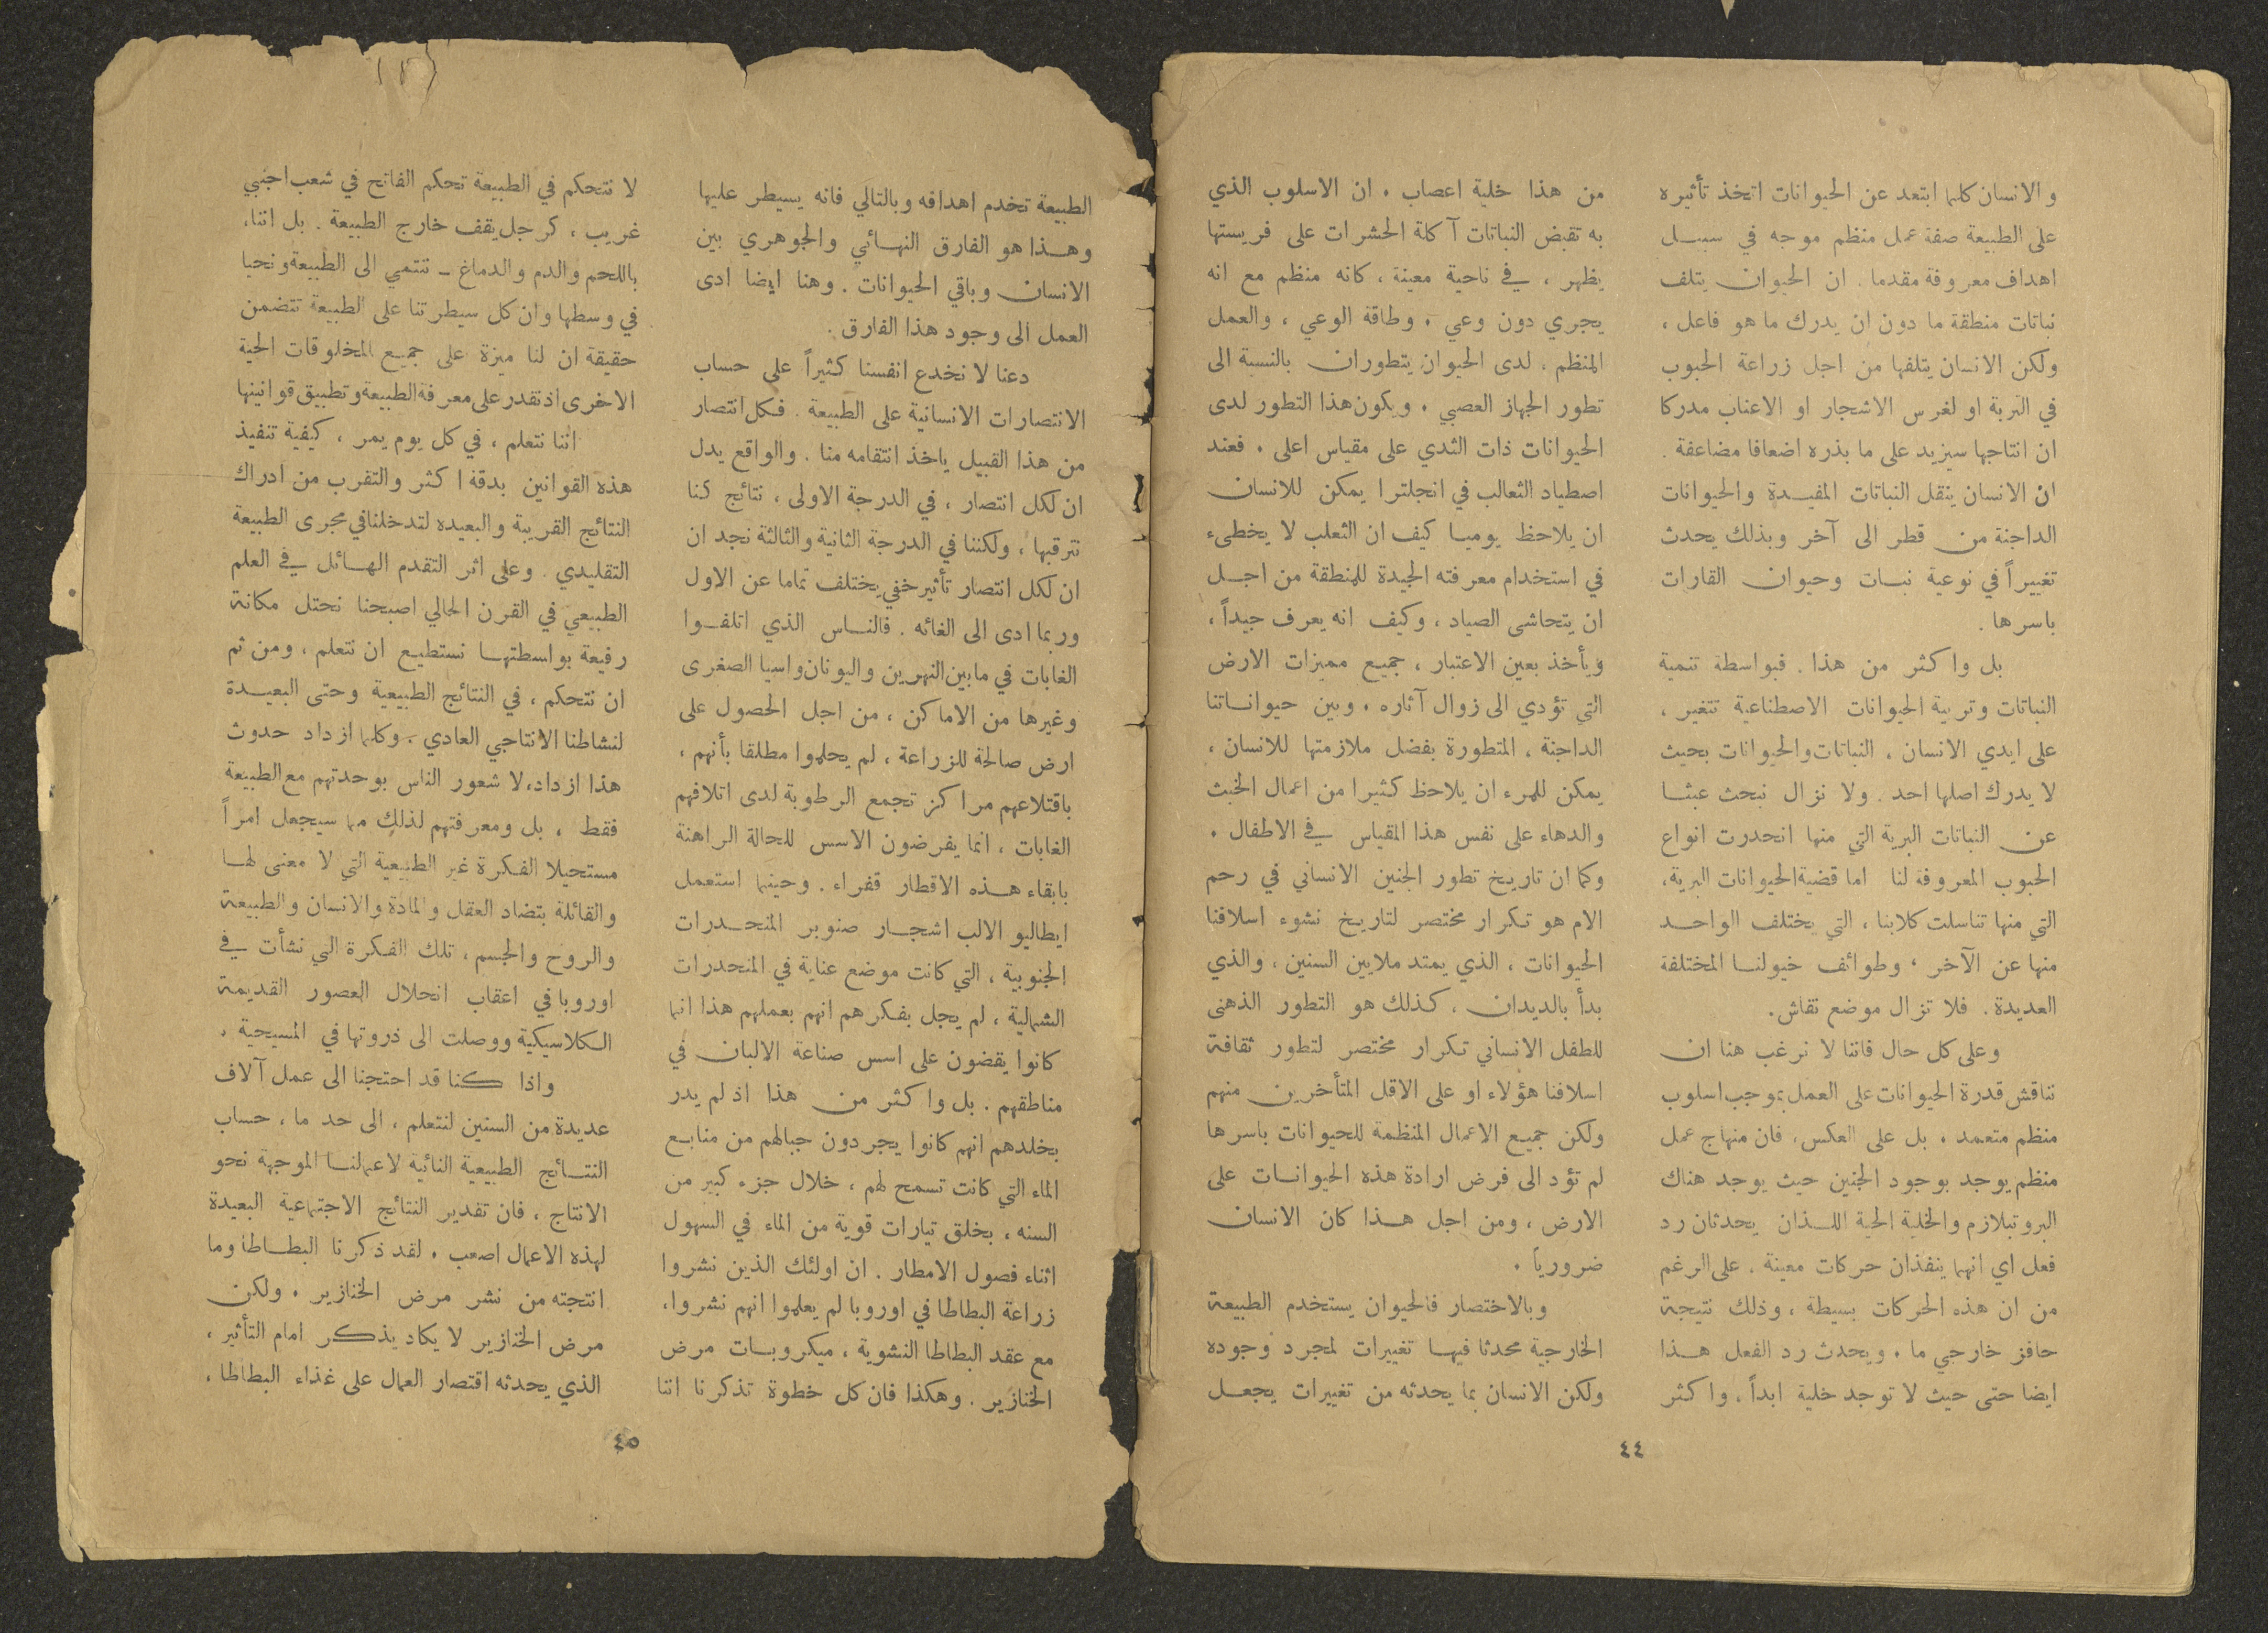 والانسان كلما ابتعد عن الحيوانات اتخذ تأثيره
على الطبيعة صفة عمل منظم موجه في سبيل
اهداف معروفة مقدما . ان الحيوان يتلف
نباتات منطقة ما دون ان يدرك ما هو فاعل ،
ولكن الانسان يتلفها من اجل زراعة الحبوب
في التربة او لغرس الاشجار او الاعناب مدركا
ان انتاجها سيزيد على ما بذره اضعافا مضاعفة .
ان الانسان ينقل النباتات المفيدة والحيوانات
الداجنة من قطر الى آخر وبذلك يحدث
تغييراً في نوعية نبات وحيوان القارات
باسرها .
بل واكثر من هذا . فبواسطة تنمية
النباتات وتربية الحيوانات الاصطناعية تتغير ،
على ايدي الانسان ، النباتات والحيوانات بحيث
لا يدرك اصلها احد . ولا نزال نبحث عبثا
عن النباتات البرية التي منها انحدرت انواع
الحبوب المعروفة لنا اما قضية الحيوانات البرية ،
التي منها تناسلت كلابنا ، التي يختلف الواحد
منها عن الآخر ، وطوائف خيولنا المختلفة
العديدة . فلا تزال موضع نقاش .
وعلى كل حال فاننا لا نرغب هنا ان
نناقش قدرة الحيوانات على العمل بموجب اسلوب
منظم متعمد . بل على العكس ، فان منهاج عمل
منظم يوجد بوجود الجنين حيث يوجد هناك
البروتبلازم والخلية الحية اللذان يحدثان رد
فعل اي انهما ينفذان حركات معينة . على الرغم
من ان هذه الحركات بسيطة ، وذلك نتيجة
حافز خارجي ما . ويحدث رد الفعل هذا
ايضا حتى حيث لا توجد خلية ابداً ، واكثر
من هذا خلية اعصاب . ان الاسلوب الذي
به تقبض النباتات آكلة الحشرات على فريستها
يظهر ، في ناحية معينة ، كانه منظم مع انه
يجري دون وعي . وطاقة الوعي ، والعمل
المنظم ، لدى الحيوان يتطوران بالنسبة الى
تطور الجهاز العصبي . ويكون هذا التطور لدى
الحيوانات ذات الثدي على مقياس اعلى . فعند
اصطياد الثعالب في انجلترا يمكن للانسان
ان يلاحظ يوميا كيف ان الثعلب لا يخطىء
في استخدام معرفته الجيدة للمنطقة من اجل
ان يتحاشى الصياد ، وكيف انه يعرف جيداً ،
ويأخذ بعين الاعتبار ، جميع مميزات الارض
التي تؤدي الى زوال آثاره . وبين حيواناتنا
الداجنة ، المتطورة بفضل ملازمتها للانسان ،
يمكن للمرء ان يلاحظ كثيرا من اعمال الخبث
والدهاء على نفس هذا المقياس في الاطفال .
وكما ان تاريخ تطور الجنين الانساني في رحم
الام هو تكرار مختصر لتاريخ نشوء اسلافنا
الحيوانات ، الذي يمتد ملايين السنين ، والذي
بدأ بالديدان ، كذلك هو التطور الذهنى
للطفل الانساني تكرار مختصر لتطور ثقافة
اسلافنا هؤلاء او على الاقل المتأخرين منهم
ولكن جميع الاعمال المنظمة للحيوانات باسرها
لم تؤد الى فرض ارادة هذه الحيوانات على
الارض ، ومن اجل هذا كان الانسان
ضرورياً .
وبالاختصار فالحيوان يستخدم الطبيعة
الخارجية محدثا فيها تغييرات لمجرد وجوده
ولكن الانسان بما يحدثه من تغييرات يجعل
٤٤
الطبيعة تخدم اهدافه وبالتالي فانه يسيطر عليها
وهذا هو الفارق النهائي والجوهري بين
الانسان وباقي الحيوانات . وهنا ايضا ادى
العمل الى وجود هذا الفارق .
دعنا لا نخدع انفسنا كثيراً على حساب
الانتصارات الانسانية على الطبيعة . فكل انتصار
من هذا القبيل ياخذ انتقامه منا . والواقع يدل
ان لكل انتصار ، في الدرجة الاولى ، نتائج كنا
نترقبها ، ولكننا في الدرجة الثانية والثالثة نجد ان
ان لكل انتصار تأثير خفي يختلف تماما عن الاول
وربما ادى الى الغائه . فالناس الذي اتلفوا
الغابات في مابين النهرين واليونان واسيا الصغرى
وغيرها من الاماكن ، من اجل الحصول على
ارض صالحة للزراعة ، لم يحلموا مطلقا بأنهم ،
باقتلاعهم مراكز تجمع الرطوبة لدى اتلافهم
الغابات ، انما يفرضون الاسس للحالة الراهنة
بابقاء هذه الاقطار قفراء . وحينما استعمل
ايطاليو الالب اشجار صنوبر المنحدرات
الجنوبية ، التي كانت موضع عناية في المنحدرات
الشمالية ، لم يجل بفكرهم انهم بعملهم هذا انما
كانوا يقضون على اسس صناعة الالبان في
مناطقهم . بل واكثر من هذا اذ لم يدر
بخلدهم انهم كانوا يجردون جبالهم من منابع
الماء التي كانت تسمح لهم ، خلال جزء كبير من
السنه ، بخلق تيارات قوية من الماء في السهول
اثناء فصول الامطار . ان اولئك الذين نشروا
زراعة البطاطا في اوروبا لم يعلموا انهم نشروا،
مع عقد البطاطا النشوية ، ميكروبات مرض
الخنازير . وهكذا فان كل خطوة تذكرنا اننا
لا نتحكم في الطبيعة تحكم الفاتح في شعب اجنبي
غريب ، كرجل يقف خارج الطبيعة . بل اننا،
باللحم والدم والدماغ ـ ننتمي الى الطبيعة ونحيا
في وسطها وان كل سيطرتنا على الطبيعة تتضمن
حقيقة ان لنا ميزة على جميع المخلوقات الحية
الاخرى اذ نقدر على معرفة الطبيعة وتطبيق قوانينها
اننا نتعلم ، في كل يوم يمر ، كيفية تنفيذ
هذه القوانين بدقة اكثر والتقرب من ادراك
النتائج القريبة والبعيده لتدخلنا في مجرى الطبيعة
التقليدي . وعلى اثر التقدم الهائل في العلم
الطبيعي في القرن الحالي اصبحنا نحتل مكانة
رفيعة بواسطتها نستطيع ان نتعلم ، ومن ثم
ان نتحكم ، في النتائج الطبيعية وحتى البعيدة
لنشاطنا الانتاجي العادي . وكلما ازداد حدوث
هذا ازداد، لا شعور الناس بوحدتهم مع الطبيعة
فقط ، بل ومعرفتهم لذلك مما سيجعل امراً
مستحيلا الفكرة غير الطبيعية التي لا معنى لها
والقائلة بتضاد العقل والمادة والانسان والطبيعة
والروح والجسم ، تلك الفكرة التي نشأت في
اوروبا في اعقاب انحلال العصور القديمة
الكلاسيكية ووصلت الى ذروتها في المسيحية .
واذا كنا قد احتجنا الى عمل آلاف
عديدة من السنين لنتعلم ، الى حد ما ، حساب
النتائج الطبيعية النائية لاعمالنا الموجهة نحو
الانتاج ، فان تقدير النتائج الاجتماعية البعيدة
لهذه الاعمال اصعب . لقد ذكرنا البطاطا وما
انتجته من نشر مرض الخنازير . ولكن
مرض الخنازير لا يكاد يذكر امام التأثير ،
الذي يحدثه اقتصار العمال على غذاء البطاطا ،
٤٥